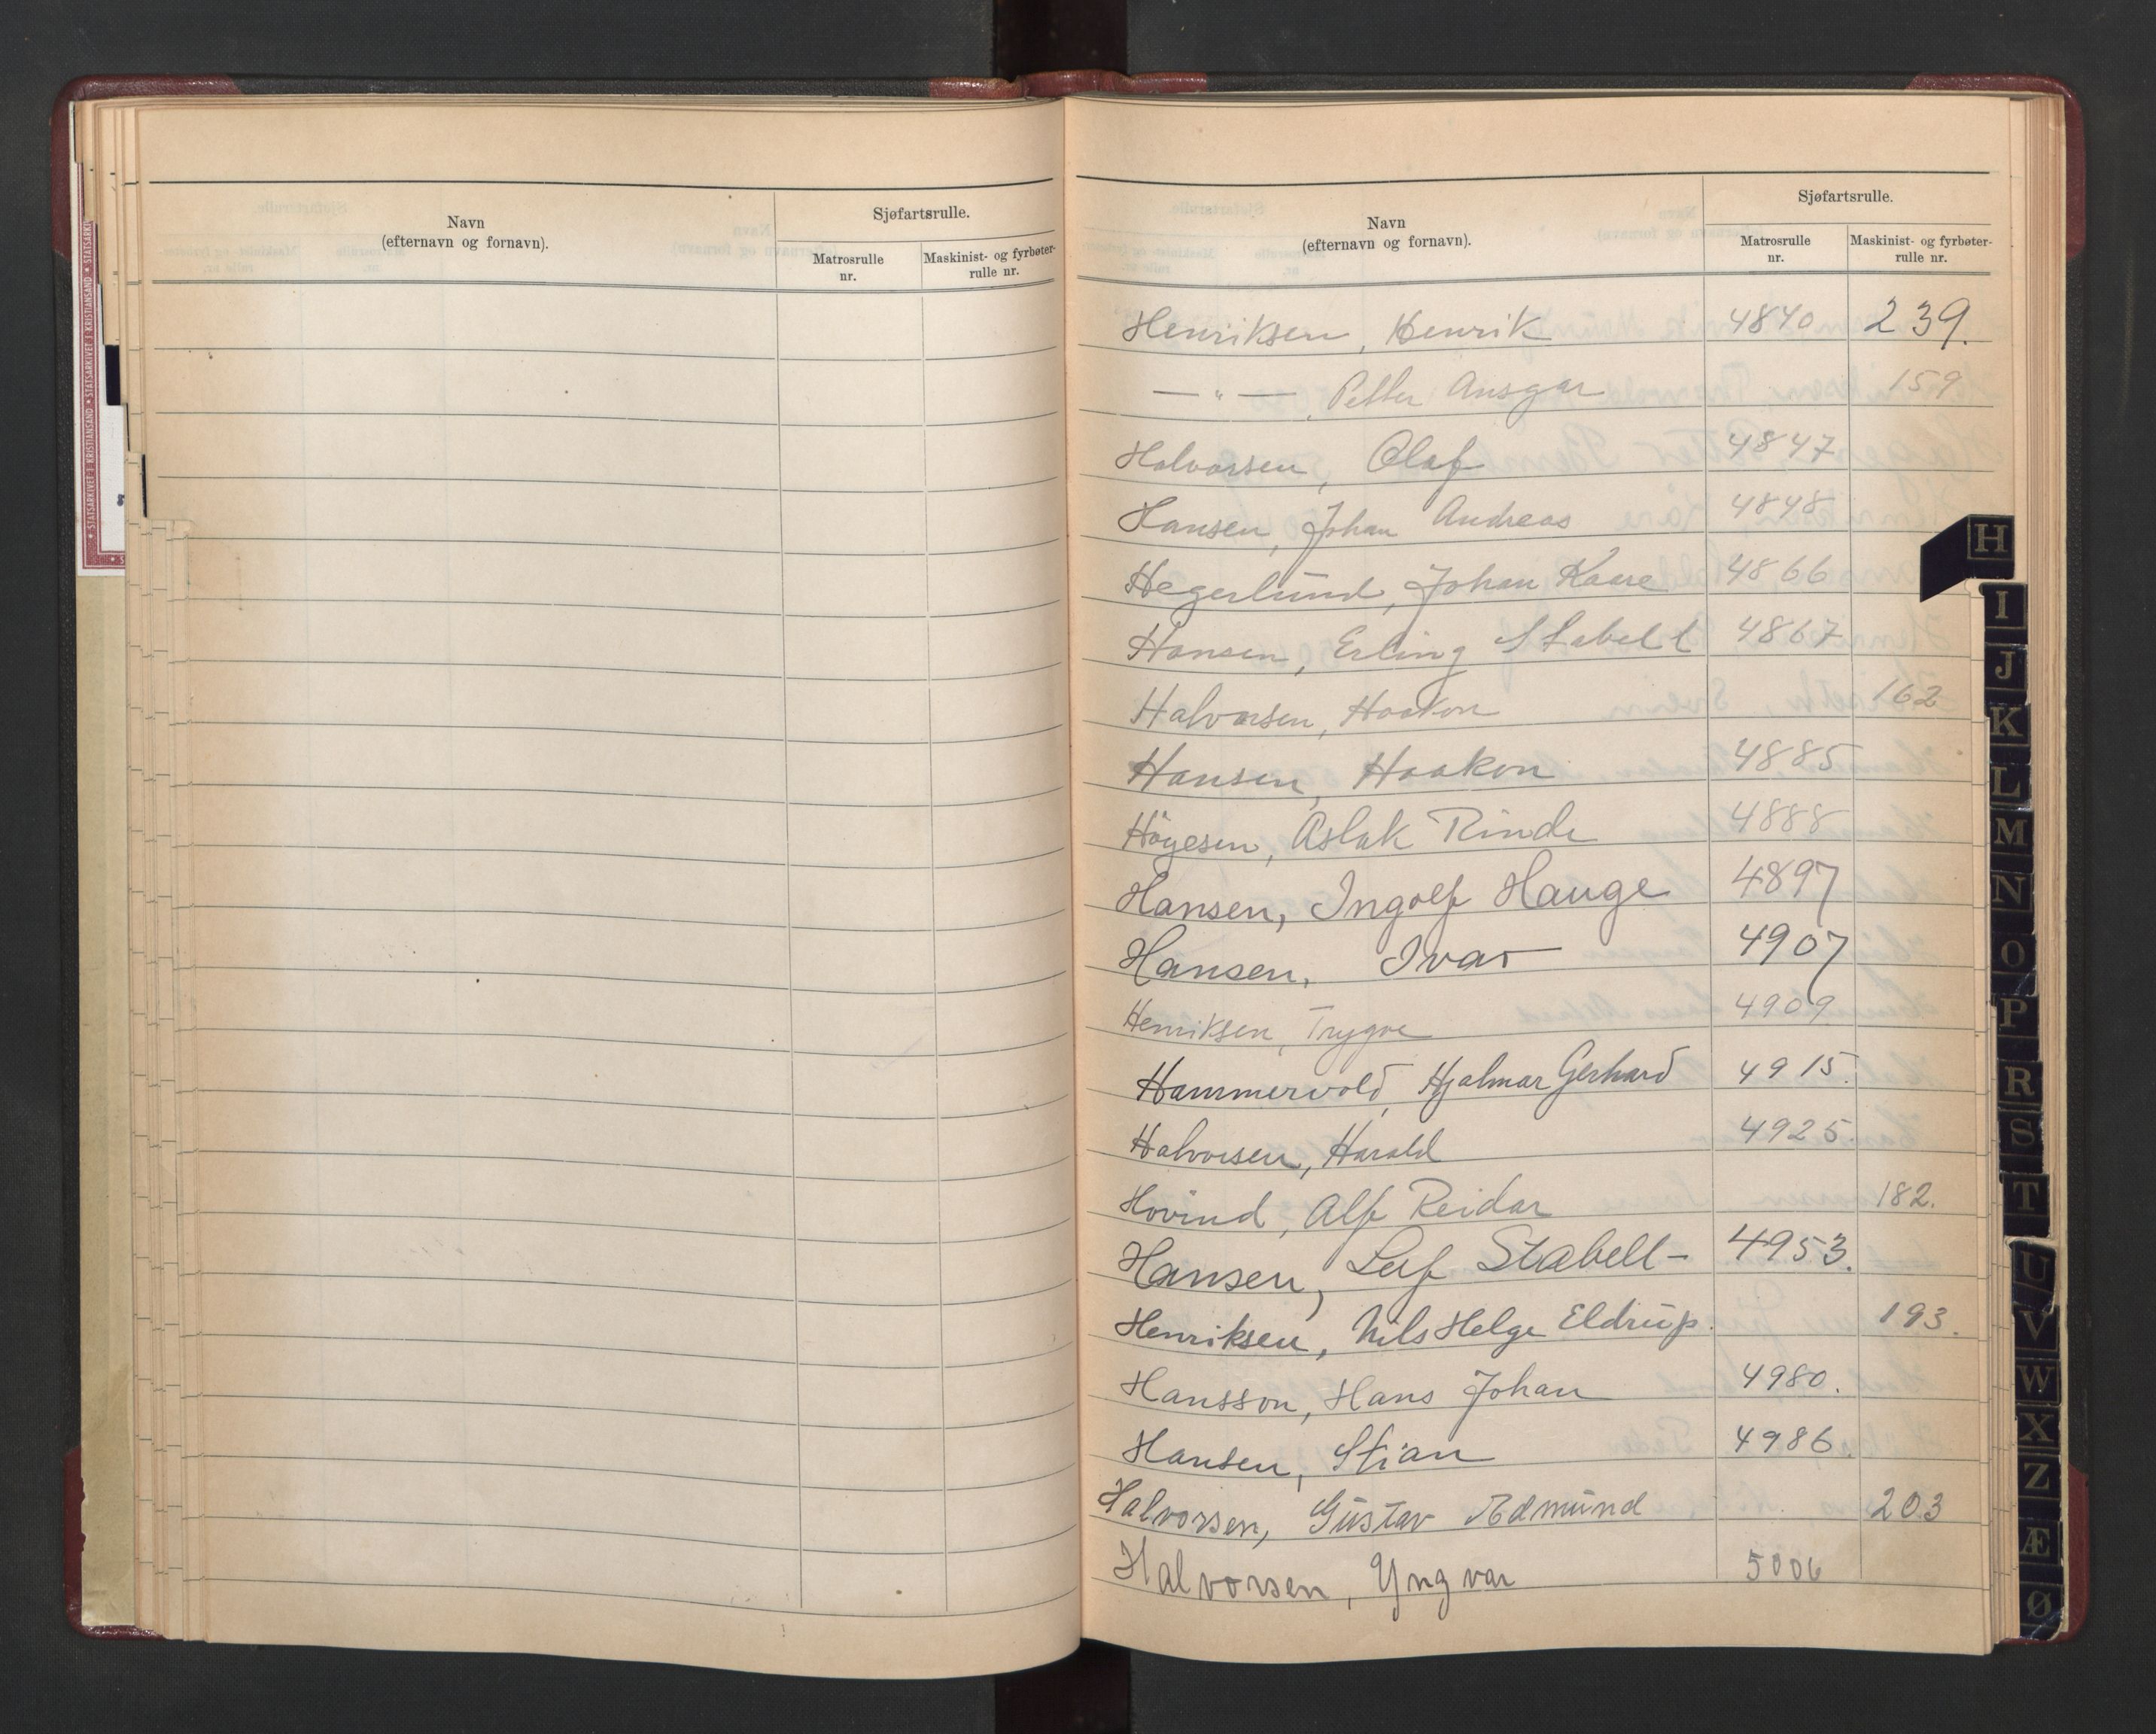 Navn
(efternavn og fornavn).
Sjøfartsrulle.
Matrosrulle
nr.
Maskinist- og fyrbøter-
rulle nr.
Navn
(efternavn og fornavn).
Sjøfartsrulle.
Matrosrulle
nr.
Maskinist- og fyrbøter-
rulle nr.
Henriksen, Henrik 4840 239.
— " — , Petter Ansgar 159
Halvorsen, Olaf 4847
Hansen, Johan Andreas 4848
Hegerlund, Johan Kaare 4866
Hansen, Erling Stabell 4867
Halvorsen, Haakon 162
Hansen, Haakon 4885
Höyesen, Aslak Rinde 4888
Hansen, Ingolf Hauge 4897
Hansen, Ivar 4907
Henriksen, Trygve 4909
Hammervold, Hjalmar Gerhard 4915.
Halvorsen, Harald 4925.
Hovind, Alf Reidar 182.
Hansen, Leif Stabell- 4953.
Henriksen, Nils Helge Eldrup. 193.
Hansson, Hans Johan 4980.
Hansen, Stian 4986.
Halvorsen, Gustav Edmund 203
Halvorsen, Yngvar 5006
H
I
J
K
L
M
N
O
P
R
S
T
U
V
W
X
Z
Æ
Ø
STATSARKIVET I KRISTIANSAND ★ STATSARKIVET I KRISTIANSAND ★ STATSARKI